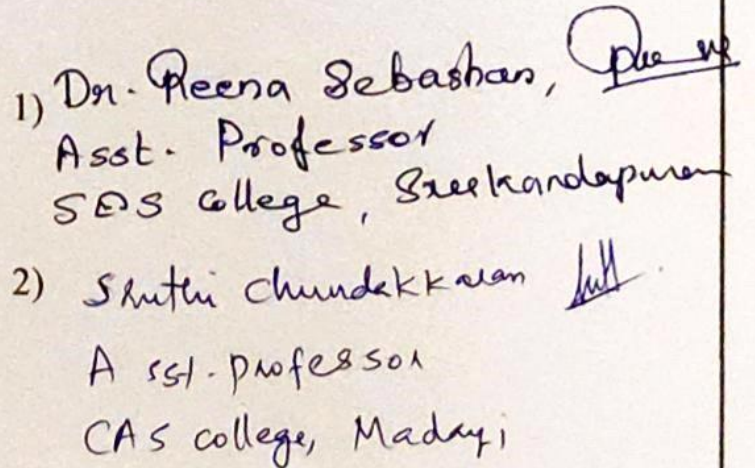 1) Dr. Reena Sebastian,
Asst. Professor
SES College, Sreekandapuram
2) Shuthi Chundakkaran
Asst. professor
CAS college, Madayi